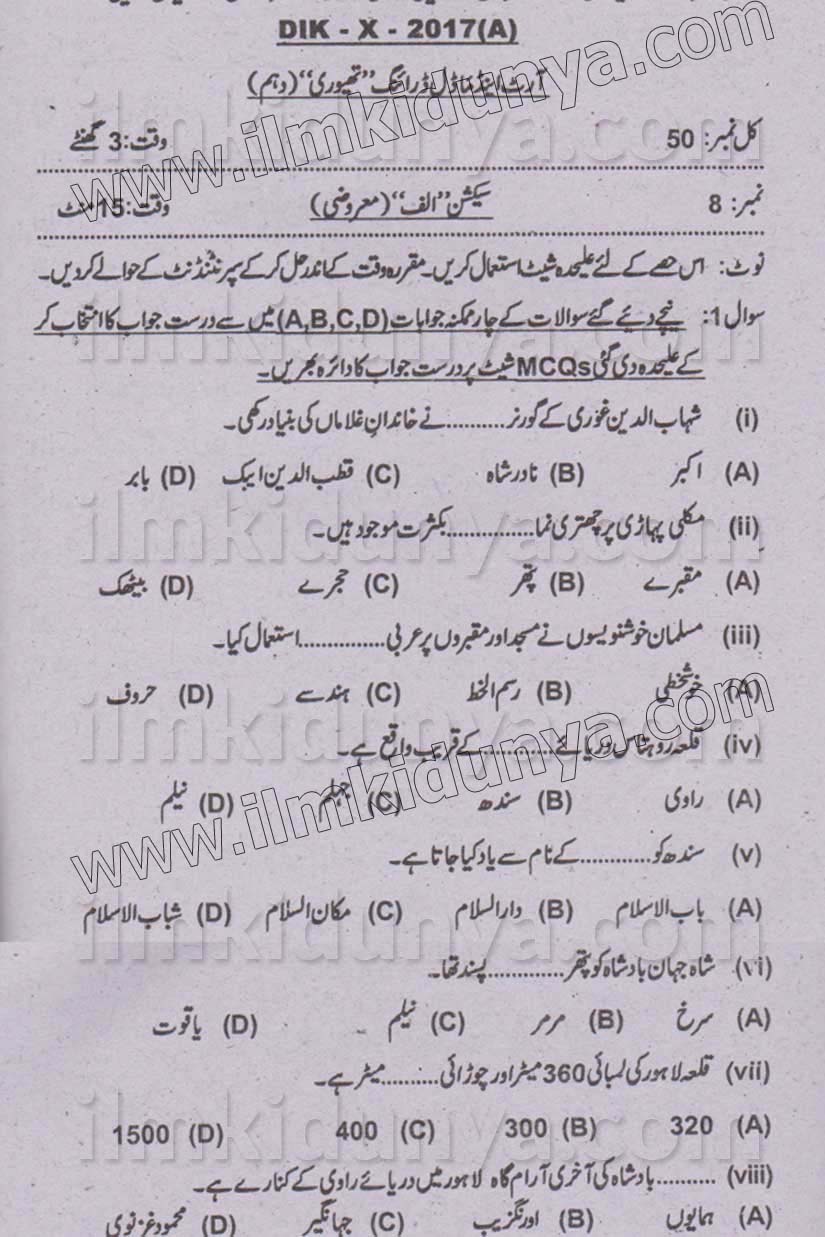 DIK - X - 2017(A)
آرٹ اینڈ ماڈل ڈرائنگ "تھیوری" (دہم)
کل نمبر: 50 وقت: 3 گھنٹے
نمبر: 8 سیکشن "الف" (معروضی) وقت: 15 منٹ
نوٹ: اس حصے کے لئے علیحدہ شیٹ استعمال کریں۔ مقررہ وقت کے اندر حل کر کے سپرنٹنڈنٹ کے حوالے کر دیں۔
سوال 1: نیچے دیئے گئے سوالات کے چار ممکنہ جوابات (A,B,C,D) میں سے درست جواب کا انتخاب کر
کے علیحدہ دی گئی MCQs شیٹ پر درست جواب کا دائرہ بھریں۔
(i) شہاب الدین غوری کے گورنر.......... نے خاندانِ غلاماں کی بنیاد رکھی۔
(A) اکبر (B) نادر شاہ (C) قطب الدین ایبک (D) بابر
(ii) مکلی پہاڑی پر چھتری نما............... بکثرت موجود ہیں۔
(A) مقبرے (B) پتھر (C) حجرے (D) بیٹھک
(iii) مسلمان خوشنویسوں نے مسجد اور مقبروں پر عربی............... استعمال کیا۔
(A) خوشخطی (B) رسم الخط (C) ہندسے (D) حروف
(iv) قلعہ روہتاس دریائے............ کے قریب واقع ہے۔
(A) راوی (B) سندھ (C) جہلم (D) نیلم
(v) سندھ کو............ کے نام سے یاد کیا جاتا ہے۔
(A) باب الاسلام (B) دار السلام (C) مکان السلام (D) شباب الاسلام
(vi) شاہ جہان بادشاہ کو پتھر............. پسند تھا۔
(A) سرخ (B) مرمر (C) نیلم (D) یاقوت
(vii) قلعہ لاہور کی لمبائی 360 میٹر اور چوڑائی.......... میٹر ہے۔
(A) 320 (B) 300 (C) 400 (D) 1500
(viii) .......... بادشاہ کی آخری آرام گاہ لاہور میں دریائے راوی کے کنارے ہے۔
(A) ہمایوں (B) اورنگزیب (C) جہانگیر (D) محمود غزنوی
www.ilmkidunya.com
www.ilmkidunya.com
ilmkidunya.com
ilmkidunya.com
ilmkidunya.com
ilmkidunya.com
ilmkidunya.com
ilmkidunya.com
ilmkidunya.com